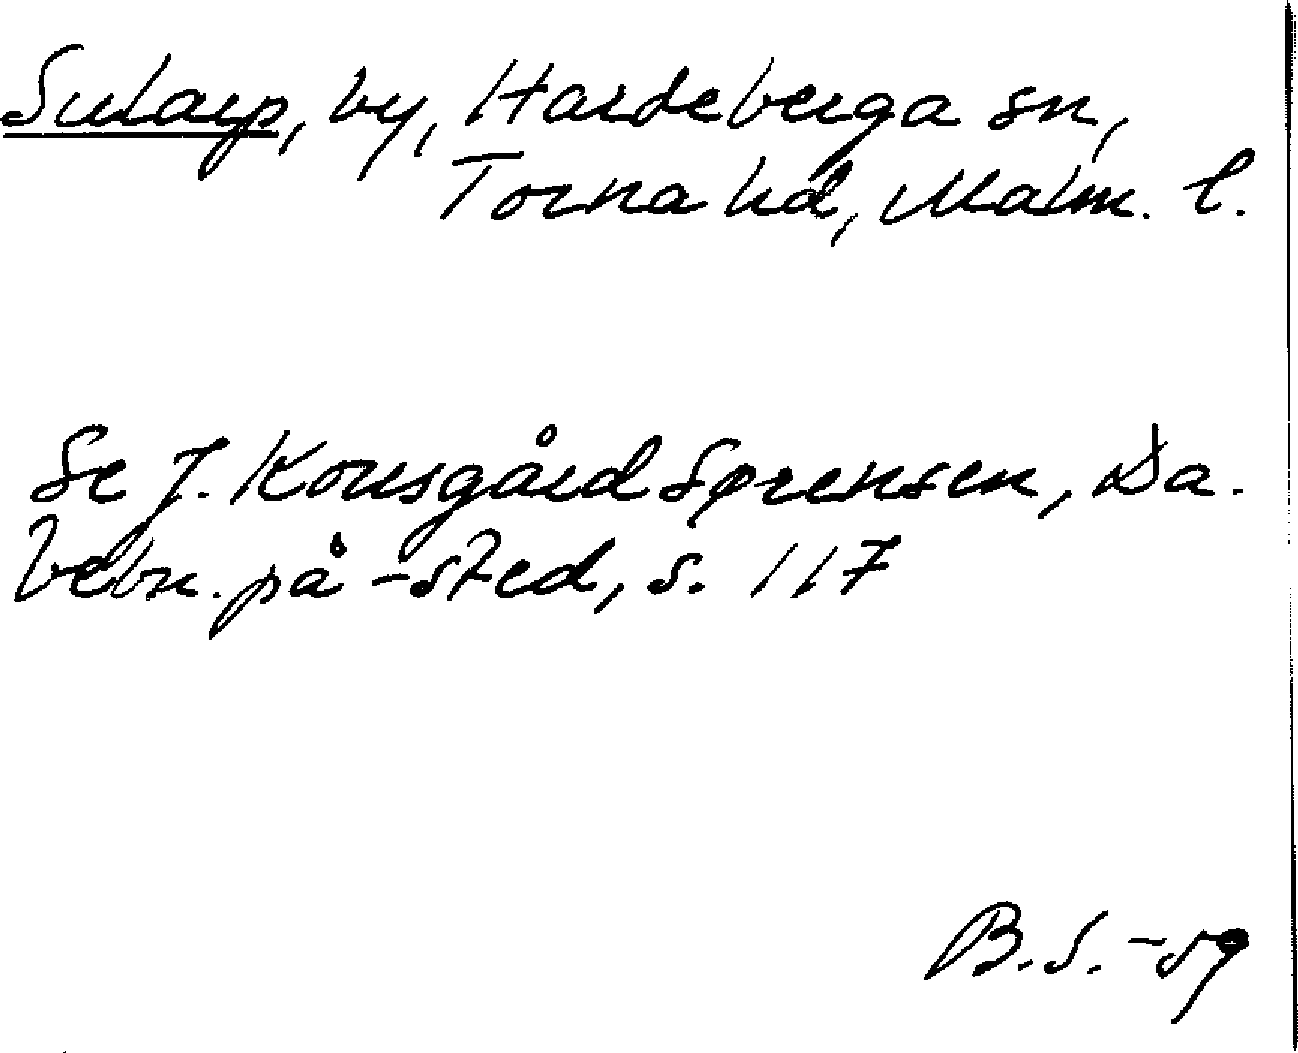 Sularp, by, Hardeberga sn,
Torna hd, Malm. l.
Se J. Kousgård Sørensen, Da.
bebn. på -sted, s. 117
B.S. -59